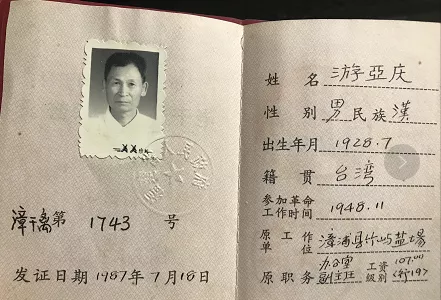 漳干离第 1743 号
发证日期 1987年7月18日
姓名 游亞庆
性别 男 民族 漢
出生年月 1928.7
籍贯 台湾
参加革命工作时间 1948.11
原工作单位 漳浦县竹屿盐場
原职务 办公室副主任 工资级别 107.00 (行19)